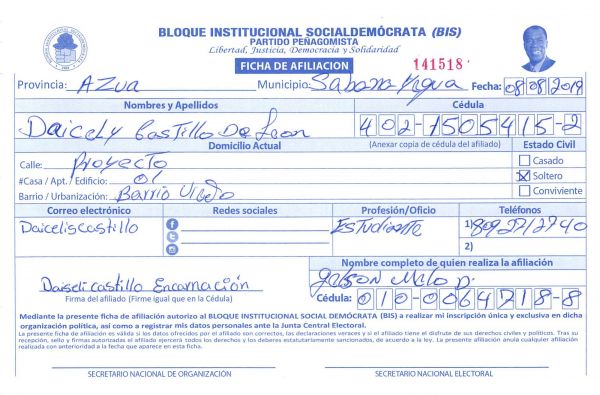 BLOQUE INSTITUCIONAL SOCIALDEMÓCRATA (BIS)
PARTIDO PEÑAGOMISTA
Libertad, Justicia, Democracia y Solidaridad
FICHA DE AFILIACION
141518
Provincia: AZUA Municipio: Sabana Yegua Fecha: 08 08 2019
Nombres y Apellidos Cédula
Daicely Castillo De Leon 402-1505415-2
Domicilio Actual (Anexar copia de cédula del afiliado) Estado Civil
Calle: Proyecto Casado
#Casa / Apt. / Edificio: 01 Soltero
Barrio / Urbanización: Barrio Viejo Conviviente
Correo electrónico Redes sociales Profesión/Oficio Teléfonos
Daiceliscastillo Estudiante 1)
2)
Nombre completo de quien realiza la afiliación
Daiseli castillo Encarnación
Firma del afiliado (Firme igual que en la Cédula) Cédula: 010-0064718-8
Mediante la presente ficha de afiliación autorizo al BLOQUE INSTITUCIONAL SOCIAL DEMÓCRATA (BIS) a realizar mi inscripción única y exclusiva en dicha
organización política, así como a registrar mis datos personales ante la Junta Central Electoral.
La presente ficha de afiliación es válida si los datos ofrecidos por el afiliado son correctos, las declaraciones veraces y si el afiliado tiene el disfrute de sus derechos civiles y políticos. Tras su
recepción, sello y firmas autorizadas el afiliado ejercerá todos los derechos y los deberes estatutariamente sancionados, de acuerdo a la ley. La presente afiliación anula cualquier afiliación
realizada con anterioridad a la fecha que aparece en esta ficha.
SECRETARIO NACIONAL DE ORGANIZACIÓN SECRETARIO NACIONAL ELECTORAL